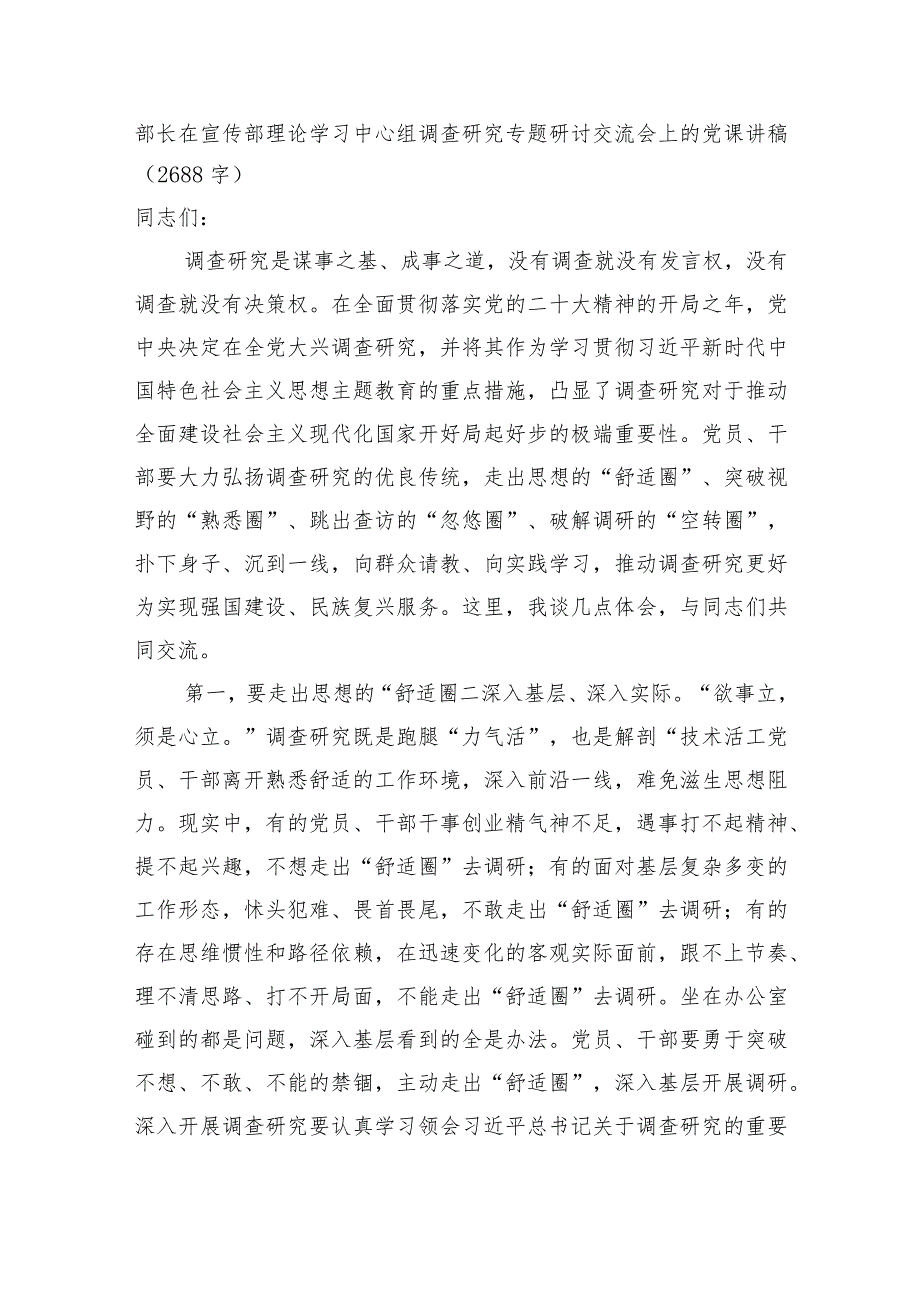 部长在宣传部理论学习中心组调查研究专题研讨交流会上的党课讲稿
（2688 字）
同志们：
调查研究是谋事之基、成事之道，没有调查就没有发言权，没有
调查就没有决策权。在全面贯彻落实党的二十大精神的开局之年，党
中央决定在全党大兴调查研究，并将其作为学习贯彻习近平新时代中
国特色社会主义思想主题教育的重点措施，凸显了调查研究对于推动
全面建设社会主义现代化国家开好局起好步的极端重要性。党员、干
部要大力弘扬调查研究的优良传统，走出思想的“舒适圈”、突破视
野的“熟悉圈”、跳出查访的“忽悠圈”、破解调研的“空转圈”，
扑下身子、沉到一线，向群众请教、向实践学习，推动调查研究更好
为实现强国建设、民族复兴服务。这里，我谈几点体会，与同志们共
同交流。
第一，要走出思想的“舒适圈二深入基层、深入实际。“欲事立，
须是心立。”调查研究既是跑腿“力气活”，也是解剖“技术活工党
员、干部离开熟悉舒适的工作环境，深入前沿一线，难免滋生思想阻
力。现实中，有的党员、干部干事创业精气神不足，遇事打不起精神、
提不起兴趣，不想走出“舒适圈”去调研；有的面对基层复杂多变的
工作形态，怵头犯难、畏首畏尾，不敢走出“舒适圈”去调研；有的
存在思维惯性和路径依赖，在迅速变化的客观实际面前，跟不上节奏、
理不清思路、打不开局面，不能走出“舒适圈”去调研。坐在办公室
碰到的都是问题，深入基层看到的全是办法。党员、干部要勇于突破
不想、不敢、不能的禁锢，主动走出“舒适圈”，深入基层开展调研。
深入开展调查研究要认真学习领会习近平总书记关于调查研究的重要